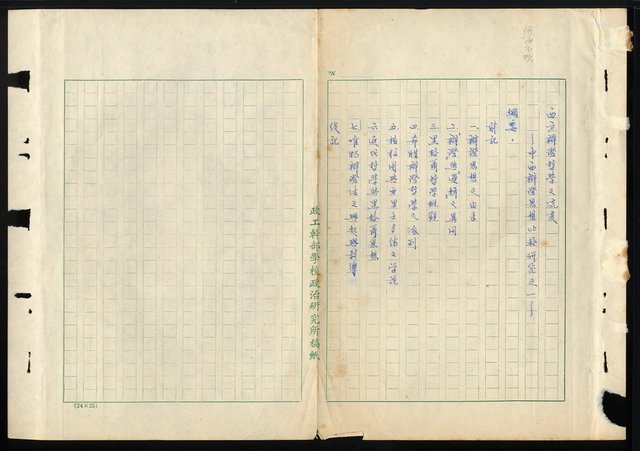 西方辯證哲學之流變
——中西辯證思想比較研究之一——
綱要：
前記
一、辯證思想之由來
二、辯證與邏輯之異同
三、黑格爾哲學概觀
四、希臘辯證哲學之派別
五、柏拉圖與亞里士多德之學說
六、近代哲學與黑格爾思想
七、唯物辯證法之興起與影響
後記
政工幹部學校政治研究所稿紙
(24×25)